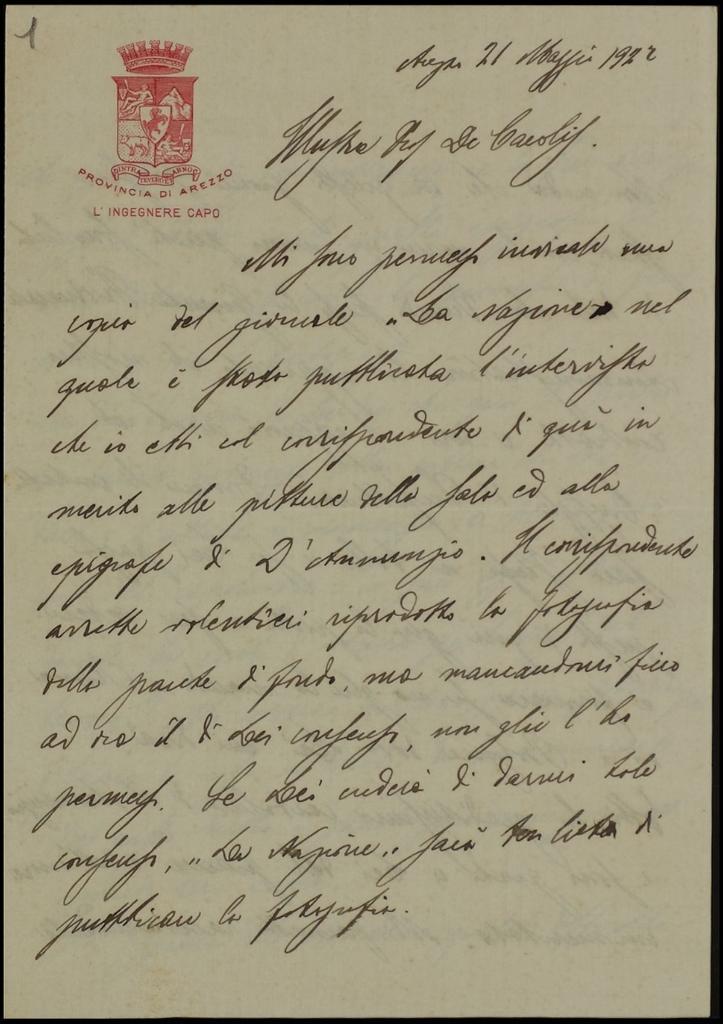 1
Arezzo 21 Maggio 1922
DINTRA TEVERO ET ARNO
PROVINCIA DI AREZZO
L'INGEGNERE CAPO
Illustre Prof De Carolis.
Mi sono permesso inviarle una
copia del giornale „La Nazione" nel
quale è stata pubblicata l'intervista
che io ebbi col corrispondente di quà in
merito alle pitture della sala ed alla
epigrafe di D'Annunzio. Il corrispondente
avrebbe volentieri riprodotto la fotografia
della parete di fondo, ma mancandomi fino
ad ora il di Lei consenso, non glie l'ho
permesso. Se Lei crederà di darmi tale
consenso, „La Nazione" sarà ben lieta di
pubblicare la fotografia.